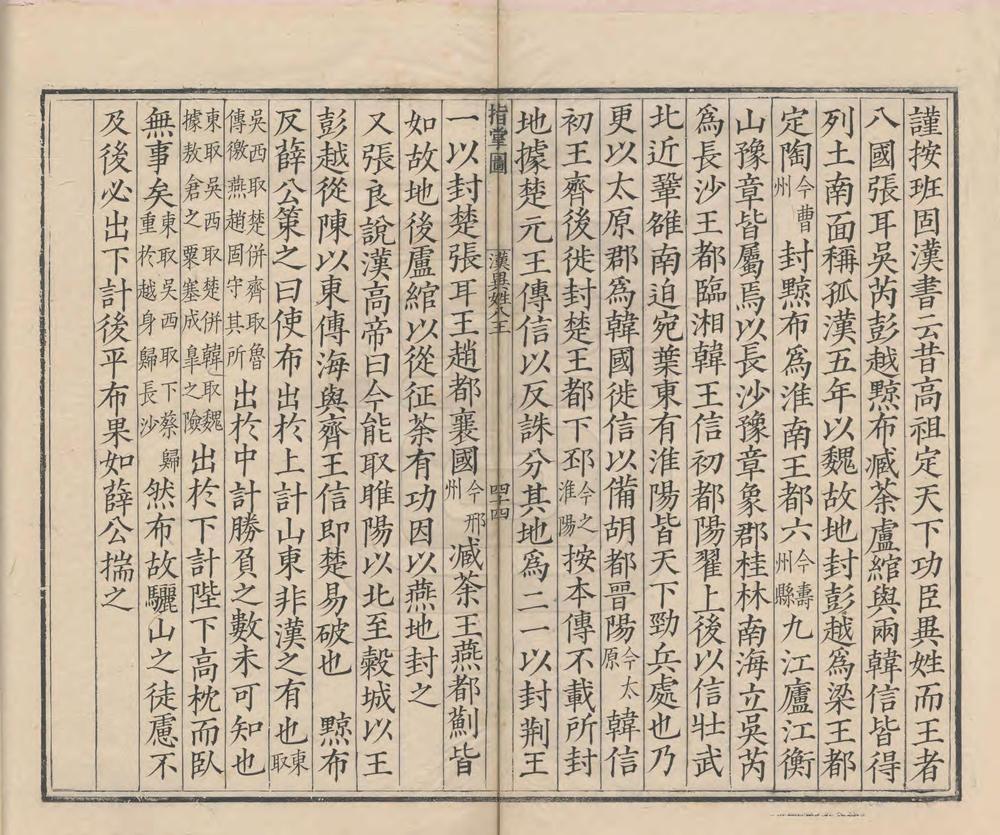 謹按班固漢書云昔高祖定天下功臣異姓而王者
八國張耳吳芮彭越黥布臧荼盧綰與兩韓信皆得
列土南面稱孤漢五年以魏故地封彭越爲梁王都
定陶今曹州封黥布爲淮南王都六今壽州縣九江廬江衡
山豫章皆屬焉以長沙豫章象郡桂林南海立吳芮
爲長沙王都臨湘韓王信初都陽翟上後以信壯武
北近鞏雒南迫宛葉東有淮陽皆天下勁兵處也乃
更以太原郡爲韓國徙信以備胡都晉陽今太原韓信
初王齊後徙封楚王都下邳今之淮陽按本傳不載所封
地據楚元王傳信以反誅分其地爲二一以封荆王
指掌圖 漢異姓八王 四十四
一以封楚張耳王趙都襄國今邢州臧荼王燕都薊皆
如故地後盧綰以從征荼有功因以燕地封之
又張良說漢高帝曰今能取睢陽以北至穀城以王
彭越從陳以東傅海與齊王信即楚易破也 黥布
反薛公策之曰使布出於上計山東非漢之有也東取
吳西取楚併齊取魯傳檄燕趙固守其所出於中計勝負之數未可知也
東取吳西取楚併韓取魏據敖倉之粟塞成皐之險出於下計陛下高枕而臥
無事矣東取吳西取下蔡歸重於越身歸長沙然布故驪山之徒慮不
及後必出下計後平布果如薛公揣之